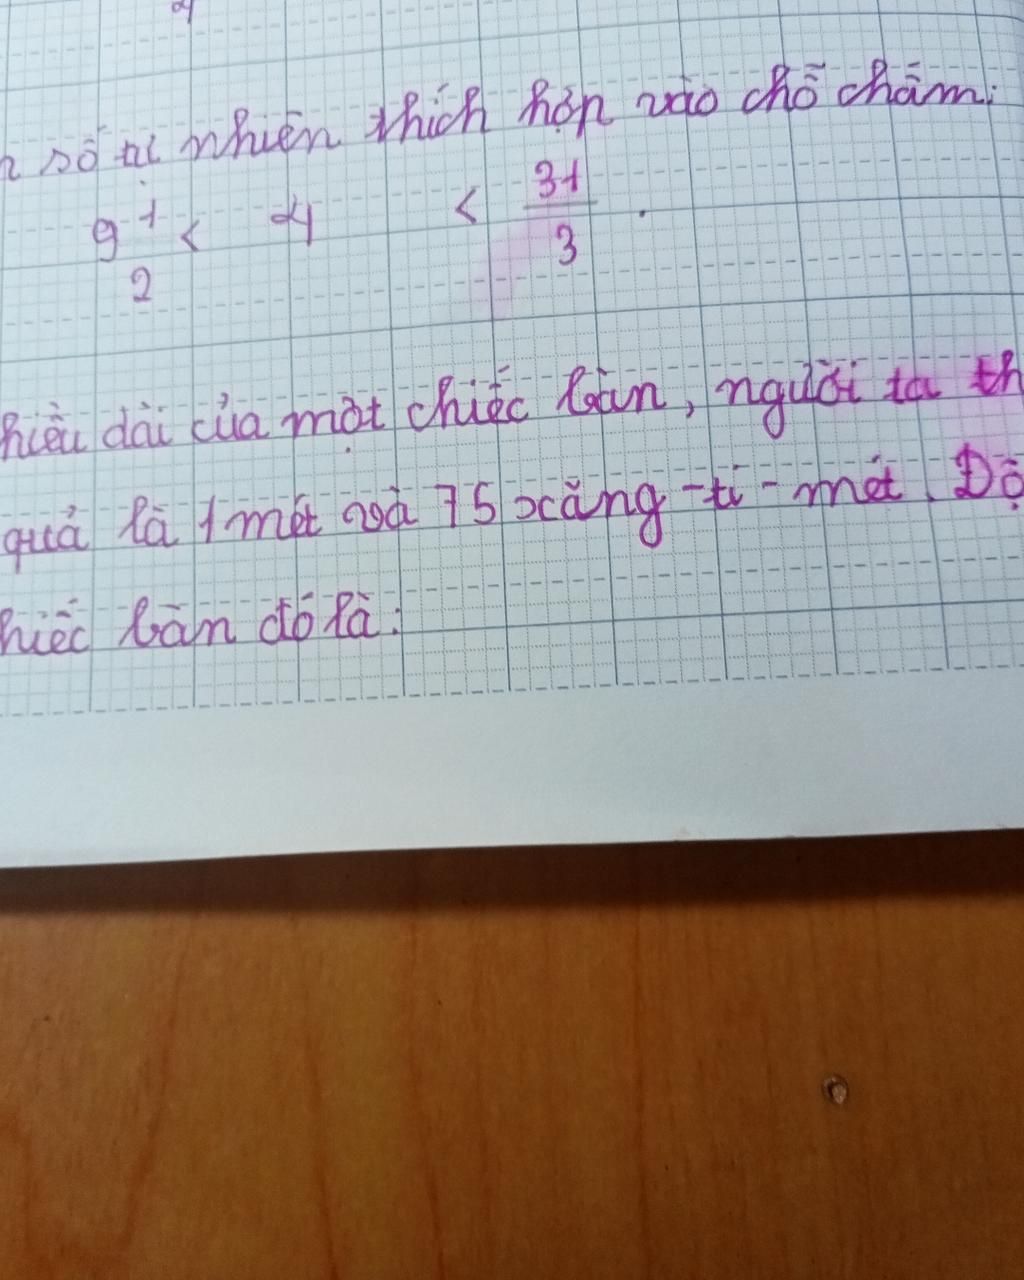 số tự nhiên thích hợp vào chỗ chấm:
9 1/2 < 4 < 31/3 .
hiều dài của một chiếc bàn, người ta th
quả là 1 mét và 75 xăng-ti-mét. Độ
hiếc bàn đó là: